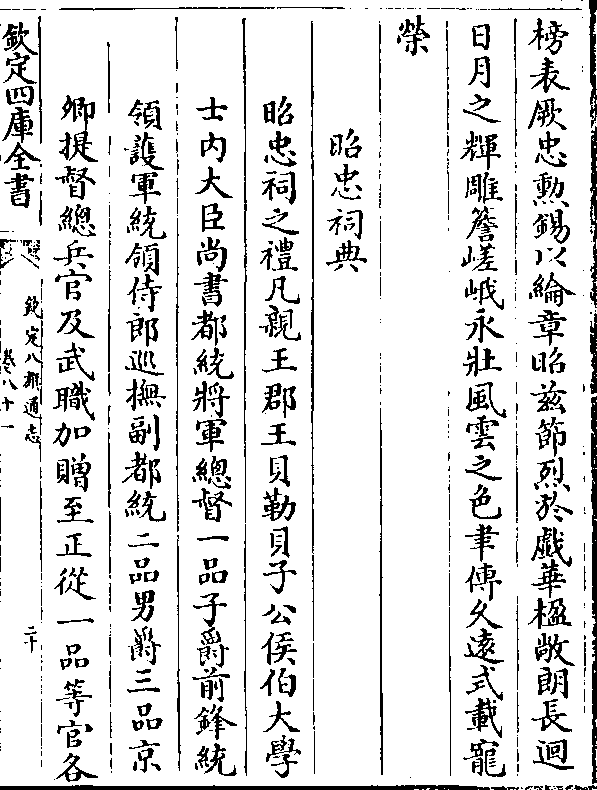 榜表厥忠勲錫以綸章昭兹節烈於戲華楹敞朗長迴
日月之輝雕簷嵯峨永壯風雲之色聿傳久遠式載寵
榮
昭忠祠典
昭忠祠之禮凡親王郡王貝勒貝子公侯伯大學
士内大臣尚書都統將軍總督一品子爵前鋒統
領䕶軍統領侍郎巡撫副都統二品男爵三品京
卿提督總兵官及武職加贈至正從一品等官各
欽定四庫全書
欽定八旗通志
卷八十一
二十